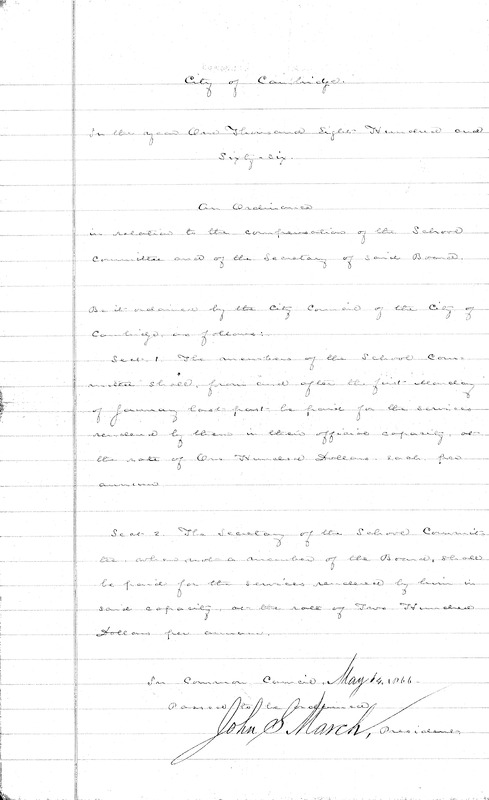 City of Cambridge.
In the year One Thousand Eight Hundred and
Sixty-six.
An Ordinance
in relation to the compensation of the School
Committee and of the Secretary of said Board.
Be it ordained by the City Council of the City of
Cambridge, as follows:
Sect. 1. The members of the School Com-
mittee shall, from and after the first Monday
of January last past be paid for the services
rendered by them in their official capacity, at
the rate of One Hundred Dollars each per
annum
Sect. 2. The Secretary of the School Commit-
tee, when not a member of the Board, shall
be paid for the services rendered by him in
said capacity, at the rate of Two Hundred
Dollars per annum.
In Common Council, May 14, 1866.
Passed to be Ordained
John S March, President